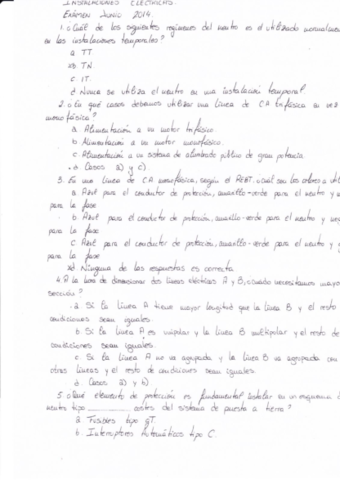 INSTALACIONES ELÉCTRICAS.
EXAMEN JUNIO 2014.
1. ¿Cuál de los siguientes regímenes del neutro es el utilizado normalmente
en las instalaciones temporales?
a. TT.
b. TN
c. IT.
d. Nunca se utiliza el neutro en una instalación temporal.
2. ¿En qué casos debemos utilizar una línea de CA trifásica en vez
monofásica?
a. Alimentación a un motor trifásico
b. Alimentación a un motor monofásico.
c. Alimentación a un sistema de alumbrado público de gran potencia.
d. Casos a) y c).
3. En una línea de CA monofásica, según el REBT. ¿cuál son los colores a
a. Azul para el conductor de protección, amarillo-verde para el neutro y
para la fase
b. Azul para el conductor de protección, amarillo-verde para el neutro y
para la fase
c. Azul para el conductor de protección, amarillo-verde para el neutro y
para la fase
d. Ninguna de las respuestas es correcta.
4. A la hora de dimensionar dos líneas eléctricas A y B, ¿cuándo necesitamos mayor
sección?
a. Si la línea A tiene mayor longitud que la línea B y el resto
condiciones sean iguales.
b. Si la línea A es unipolar y la línea B multipolar y el resto de
condiciones sean iguales.
c. Si la línea A no va agrupada y la línea B va agrupada con
otras líneas y el resto de condiciones sean iguales.
d. Casos a) y b)
5. ¿Qué elemento de protección es fundamental instalar en un esquema
neutro tipo ______ antes del sistema de puesta a tierra?
a. Fusibles tipo gT.
b. Interruptores Automáticos tipo C.